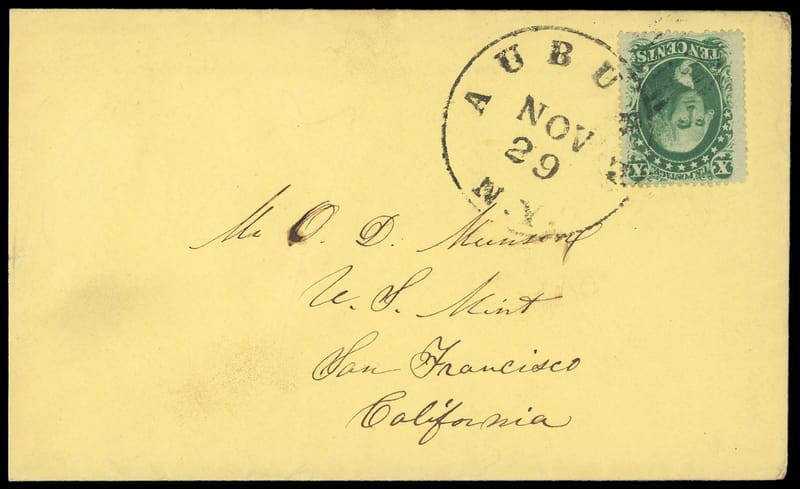 AUBURN
NOV
29
N.Y.
TEN CENTS
U.S. POSTAGE
X X
Mr O. D. Munson
U. S. Mint
San Francisco
California